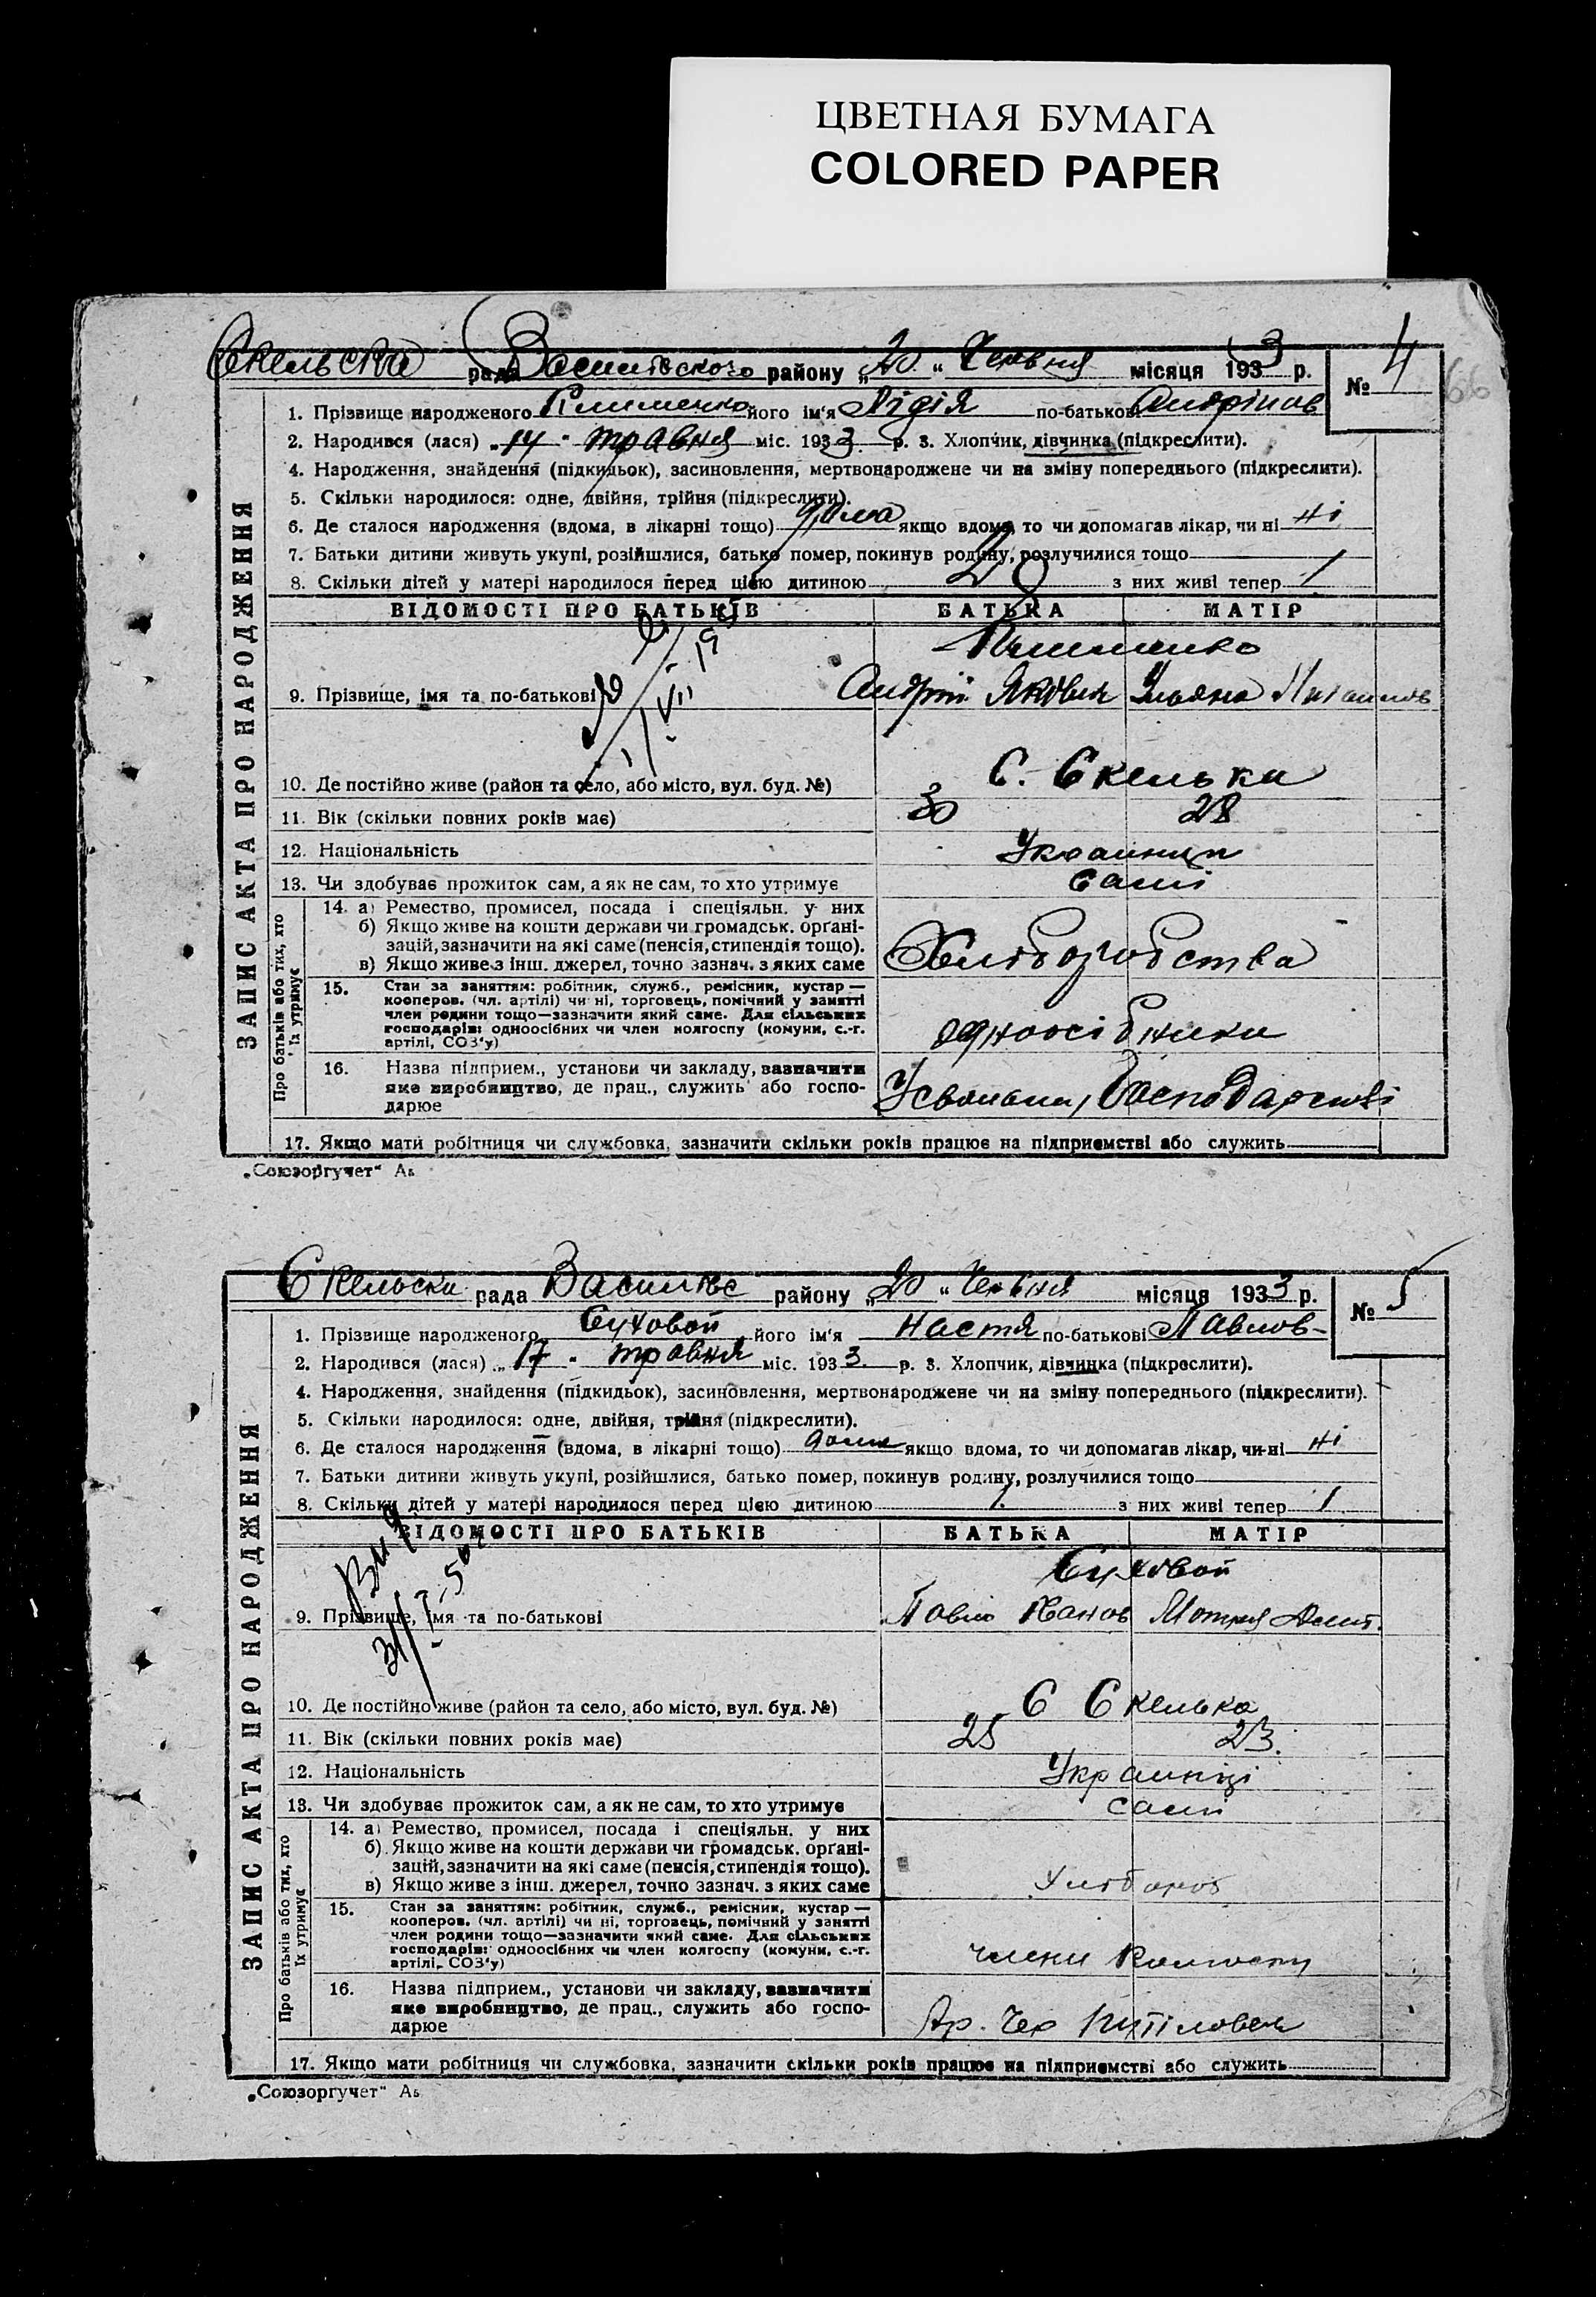 ЦВЕТНАЯ БУМАГА
COLORED PAPER
Скельська рада Василівского району „20“ Червня місяця 1933 р.
№ 4
66
1. Прізвище народженого Клименко його ім'я Лідія по-батькові Андріїов
2. Народився (лася) „14" травня міс. 1933 р. 3. Хлопчик, дівчинка (підкреслити).
4. Народження, знайдення (підкидьок), засиновлення, мертвонароджене чи на зміну попереднього (підкреслити).
5. Скільки народилося: одне, двійня, трійня (підкреслити).
6. Де сталося народження (вдома, в лікарні тощо) дома якщо вдома, то чи допомагав лікар, чи ні ні
7. Батьки дитини живуть укупі, розійшлися, батько помер, покинув родину, розлучилися тощо
8. Скільки дітей у матері народилося перед цією дитиною 2 з них живі тепер 1
ВІДОМОСТІ ПРО БАТЬКІВ БАТЬКА МАТІР
Клименко
9. Прізвище, імя та по-батькові Андрій Якович Уляна
10. Де постійно живе (район та село, або місто, вул. буд. №) С. Скелька
11. Вік (скільки повних років має) 30 28
12. Національність Украинци
13. Чи здобуває прожиток сам, а як не сам, то хто утримує Самі
14. а) Ремество, промисел, посада і спеціяльн. у них
б) Якщо живе на кошти держави чи громадськ. органі-
зацій, зазначити на які саме (пенсія, стипендія тощо).
в) Якщо живе з інш. джерел, точно зазнач. з яких саме Хліборобства
15. Стан за заняттям: робітник, служб., ремісник, кустар —
кооперов. (чл. артілі) чи ні, торговець, помічний у занятті
член родини тощо—зазначити який саме. Для сільських
господарів: одноосібних чи член колгоспу (комуни, с.-г.
артілі, СОЗ'у) одноосібники
16. Назва підприем., установи чи закладу, зазначити
яке виробництво, де прац., служить або госпо-
дарюе Господарстві
17. Якщо мати робітниця чи службовка, зазначити скільки років працює на підприємстві або служить
Про батьків або тих, хто їх утримує
ЗАПИС АКТА ПРО НАРОДЖЕННЯ
„Союзоргучет“ Аь
Скельски рада Василівс району „20“ Червня місяця 1933 р.
№ 5
1. Прізвище народженого Суховой його ім'я Настя по-батькові Павлов-
2. Народився (лася) „17" травня міс. 1933 р. 3. Хлопчик, дівчинка (підкреслити).
4. Народження, знайдення (підкидьок), засиновлення, мертвонароджене чи на зміну попереднього (підкреслити).
5. Скільки народилося: одне, двійня, трійня (підкреслити).
6. Де сталося народження (вдома, в лікарні тощо) дома якщо вдома, то чи допомагав лікар, чи-ні ні
7. Батьки дитини живуть укупі, розійшлися, батько помер, покинув родину, розлучилися тощо
8. Скільки дітей у матері народилося перед цією дитиною 1 з них живі тепер 1
ВІДОМОСТІ ПРО БАТЬКІВ БАТЬКА МАТІР
Суховой
9. Прізвище, імя та по-батькові Павло Иванов Мотря Дмит.
10. Де постійно живе (район та село, або місто, вул. буд. №) С Скелька
11. Вік (скільки повних років має) 25 23
12. Національність Украинці
13. Чи здобуває прожиток сам, а як не сам, то хто утримує самі
14. а) Ремество, промисел, посада і спеціяльн. у них
б) Якщо живе на кошти держави чи громадськ. органі-
зацій, зазначити на які саме (пенсія, стипендія тощо).
в) Якщо живе з інш. джерел, точно зазнач. з яких саме Хлібороб
15. Стан за заняттям: робітник, служб., ремісник, кустар —
кооперов. (чл. артілі) чи ні, торговець, помічний у занятті
член родини тощо—зазначити який саме. Для сільських
господарів: одноосібних чи член колгоспу (комуни, с.-г.
артілі, СОЗ'у) члени Колгоспу
16. Назва підприем., установи чи закладу, зазначити
яке виробництво, де прац., служить або госпо-
дарюе Ар. Чер
17. Якщо мати робітниця чи службовка, зазначити скільки років працює на підприємстві або служить
Про батьків або тих, хто їх утримує
ЗАПИС АКТА ПРО НАРОДЖЕННЯ
„Союзоргучет“ Аь